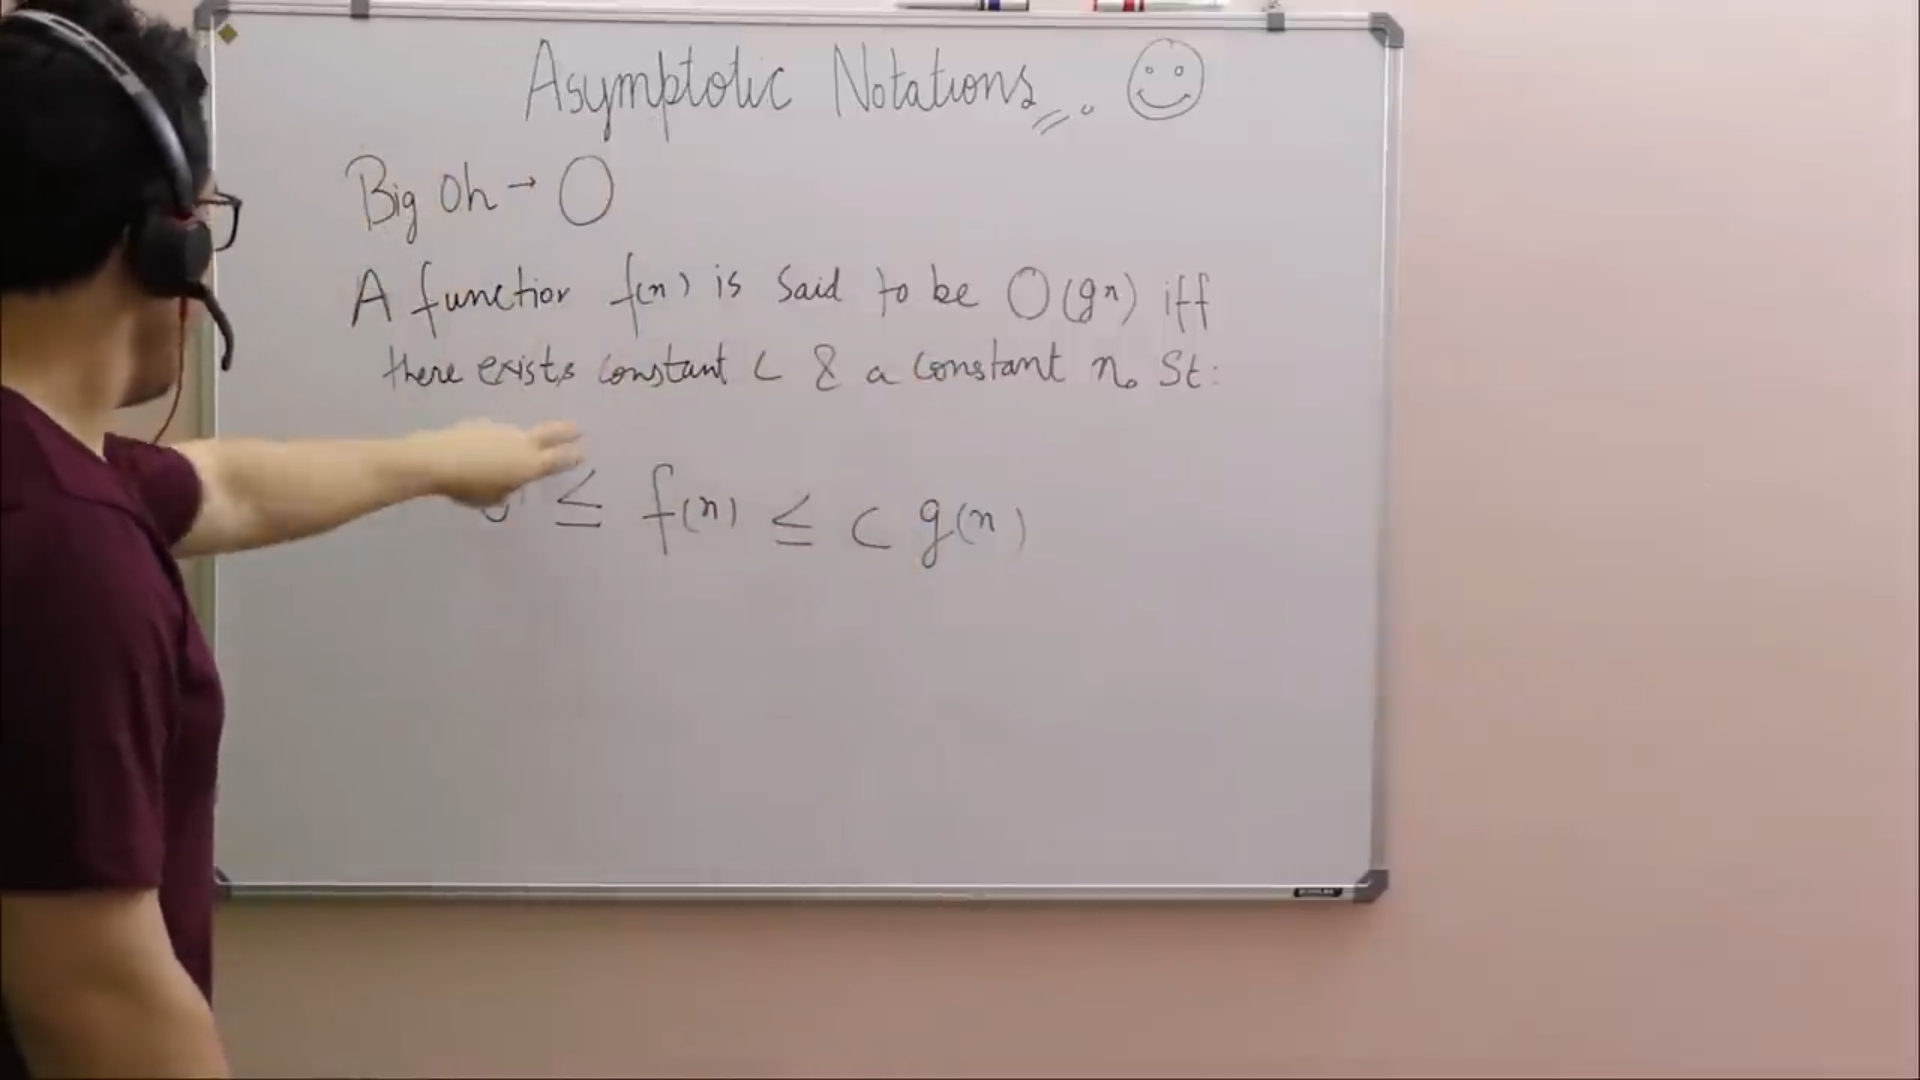 Asymptotic Notations
Big Oh → O
A function f(n) is said to be O(gn) iff
there exists constant C & a constant n₀ St:
≤ f(n) ≤ C g(n)